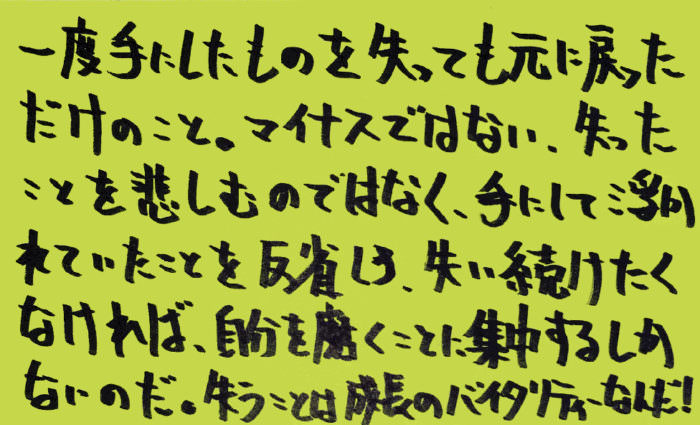 一度手にしたものを失っても元に戻った
だけのこと。マイナスではない、失った
ことを悲しむのではなく、手にして浮か
れていたことを反省しろ、失い続けたく
なければ、自分を磨くことに集中するしか
ないのだ。失うことは成長のバイタリティーなんだ!